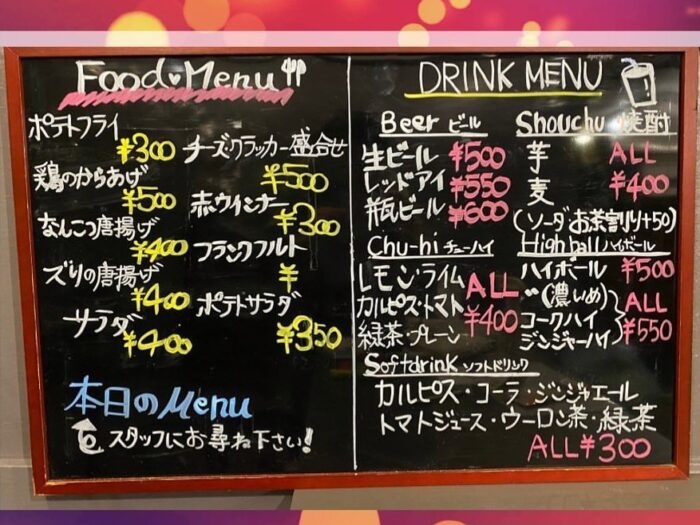 Food♥Menu
ポテトフライ
¥300
鶏のからあげ
¥500
なんこつ唐揚げ
¥400
ズリの唐揚げ
¥400
サラダ
¥400
チーズクラッカー盛合せ
¥500
赤ウインナー
¥300
フランクフルト
¥
ポテトサラダ
¥350
本日のMenu
スタッフにお尋ね下さい!
DRINK MENU
Beer ビール
生ビール ¥500
レッドアイ ¥550
瓶ビール ¥600
Chu-hi チューハイ
レモン・ライム
カルピス・トマト
緑茶・プレーン
ALL
¥400
Shouchu 焼酎
芋 ALL
麦 ¥400
(ソーダお茶割り+50)
Highball ハイボール
ハイボール ¥500
〃(濃いめ)
コークハイ
ジンジャーハイ
ALL
¥550
Softdrink ソフトドリンク
カルピス・コーラ・ジンジャエール
トマトジュース・ウーロン茶・緑茶
ALL¥300